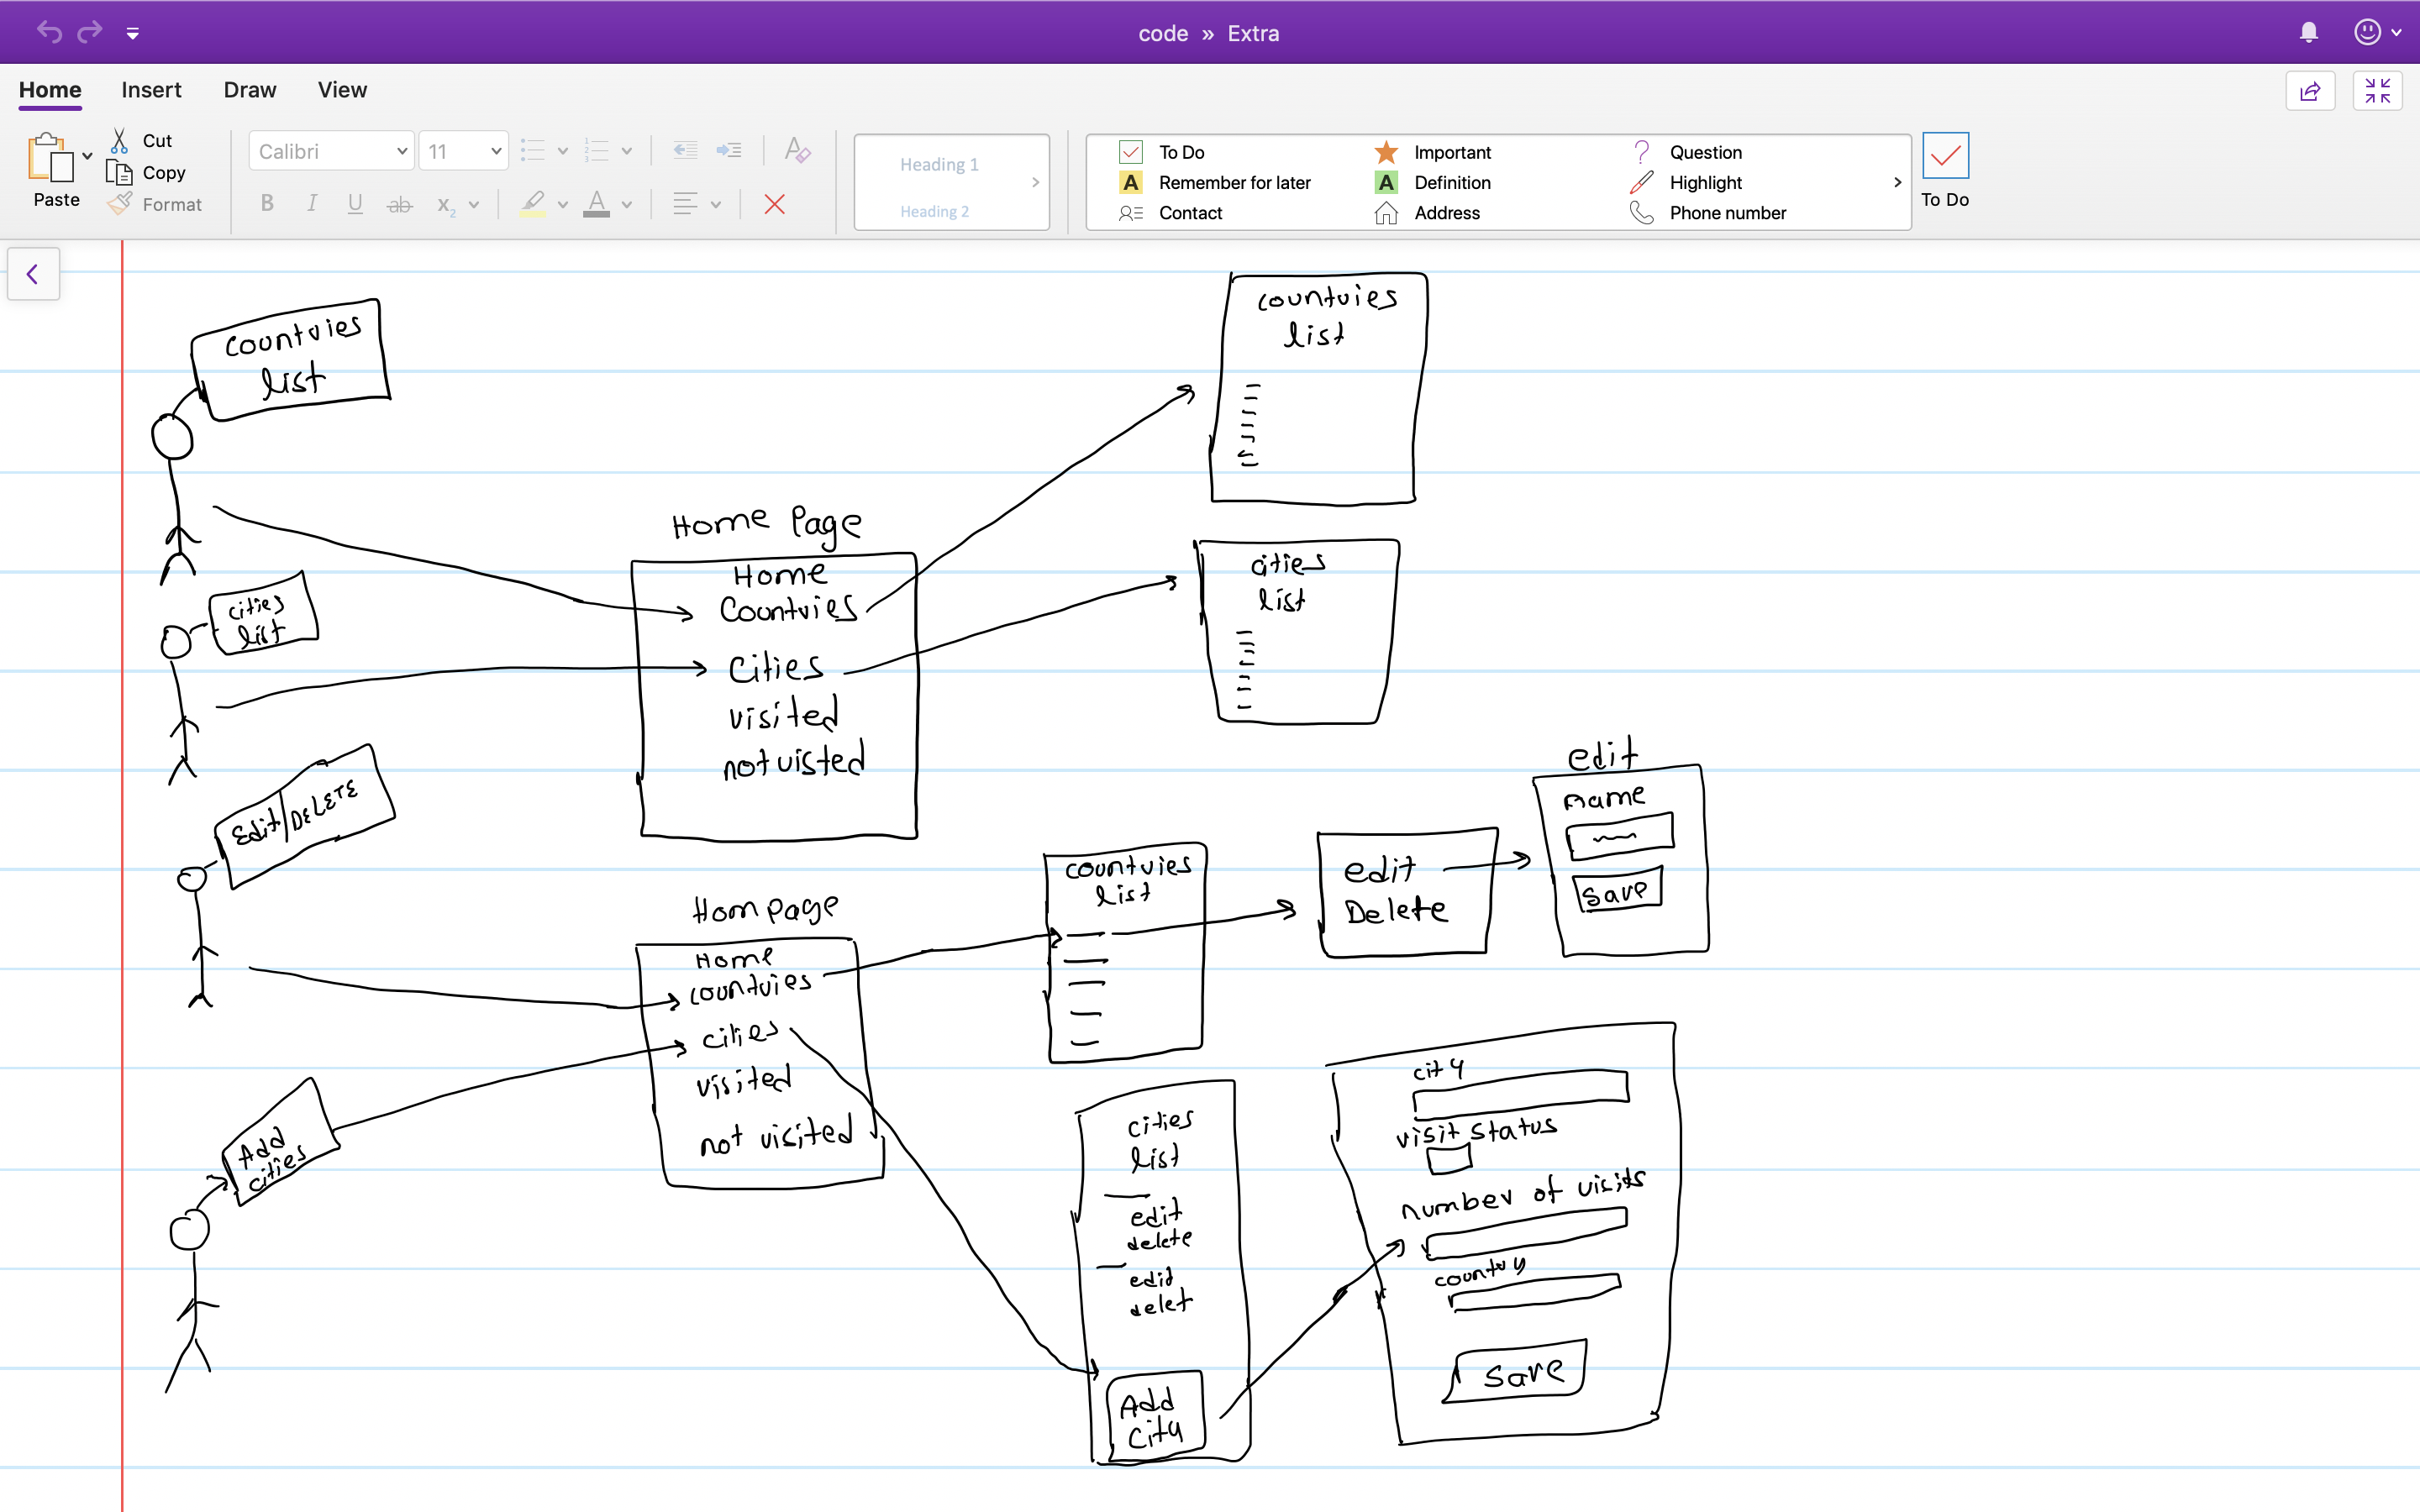 code » Extra
Home Insert Draw View
Paste
Cut
Copy
Format
Calibri 11
B I U ab x₂ A
Heading 1
Heading 2
To Do Important Question
A Remember for later A Definition Highlight
Contact Address Phone number
To Do
Countries
list
countries
list
Home Page
Home
Countries
Cities
visited
not visted
cities
list
cities
list
Edit/DELETE
Hom page
Home
countries
cities
visited
not visited
countries
list
edit
Delete
edit
name
save
Add
cities
cities
list
edit
delete
edid
delet
Add
City
city
visit status
number of visits
country
save